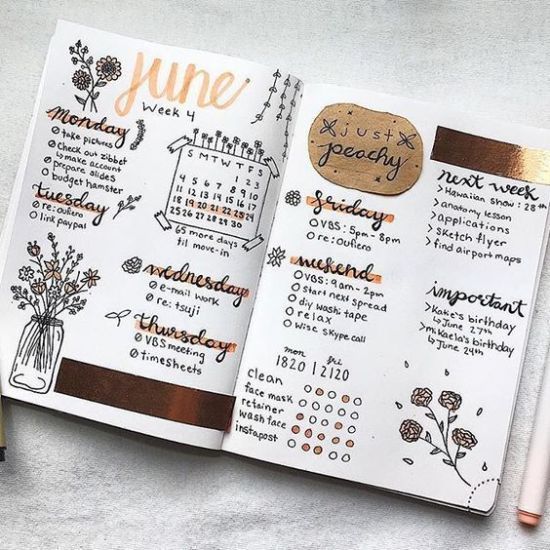 june
Week 4
Monday
take pictures
check out zibbet
↳ make account
prepare slides
budget hamster
Tuesday
re: outiero
link paypal
S M T W T F S
1 2 3
4 5 6 7 8 9 10
11 12 13 14 15 16 17
18 19 20 21 22 23 24
25 26 27 28 29 30
65 more days
til move-in
wednesday
e-mail work
re: tsuji
thursday
VBS meeting
timesheets
just
peachy
friday
VBS: 5pm - 8pm
re: outiero
weekend
VBS: 9am - 2pm
start next spread
diy washi tape
relax
wise skype call
mon fri
1820|2120
clean
face mask
retainer
wash face
instapost
next week
> Hawaiian show : 28th
> anatomy lesson
> applications
> sketch flyer
> find airport maps
important
> Kate's birthday
↳ June 27th
> mikaela's birthday
↳ June 24th